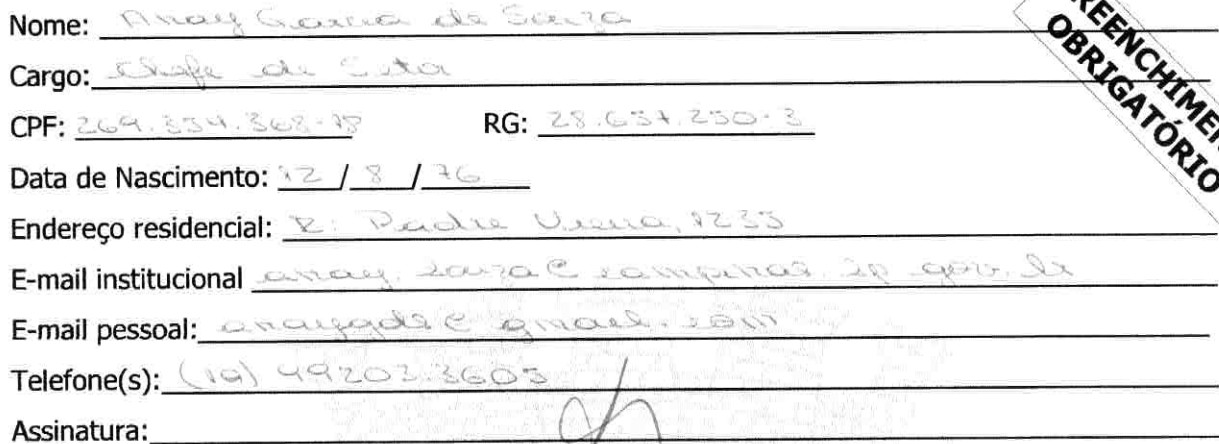 Nome: Anay Garcia de Souza
Cargo: Chefe de Setor
CPF: 269.334.368-18 RG: 28.657.250-3
Data de Nascimento: 12 / 8 / 76
Endereço residencial: R: Padre Vieira, 1233
E-mail institucional anay.souza@campinas.sp.gov.br
E-mail pessoal: anaygds@gmail.com
Telefone(s): (19) 99203.3605
Assinatura:
OBRIGATÓRIO